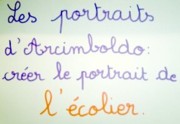 Les portraits
d'Arcimboldo:
créer le portrait de
l'écolier.